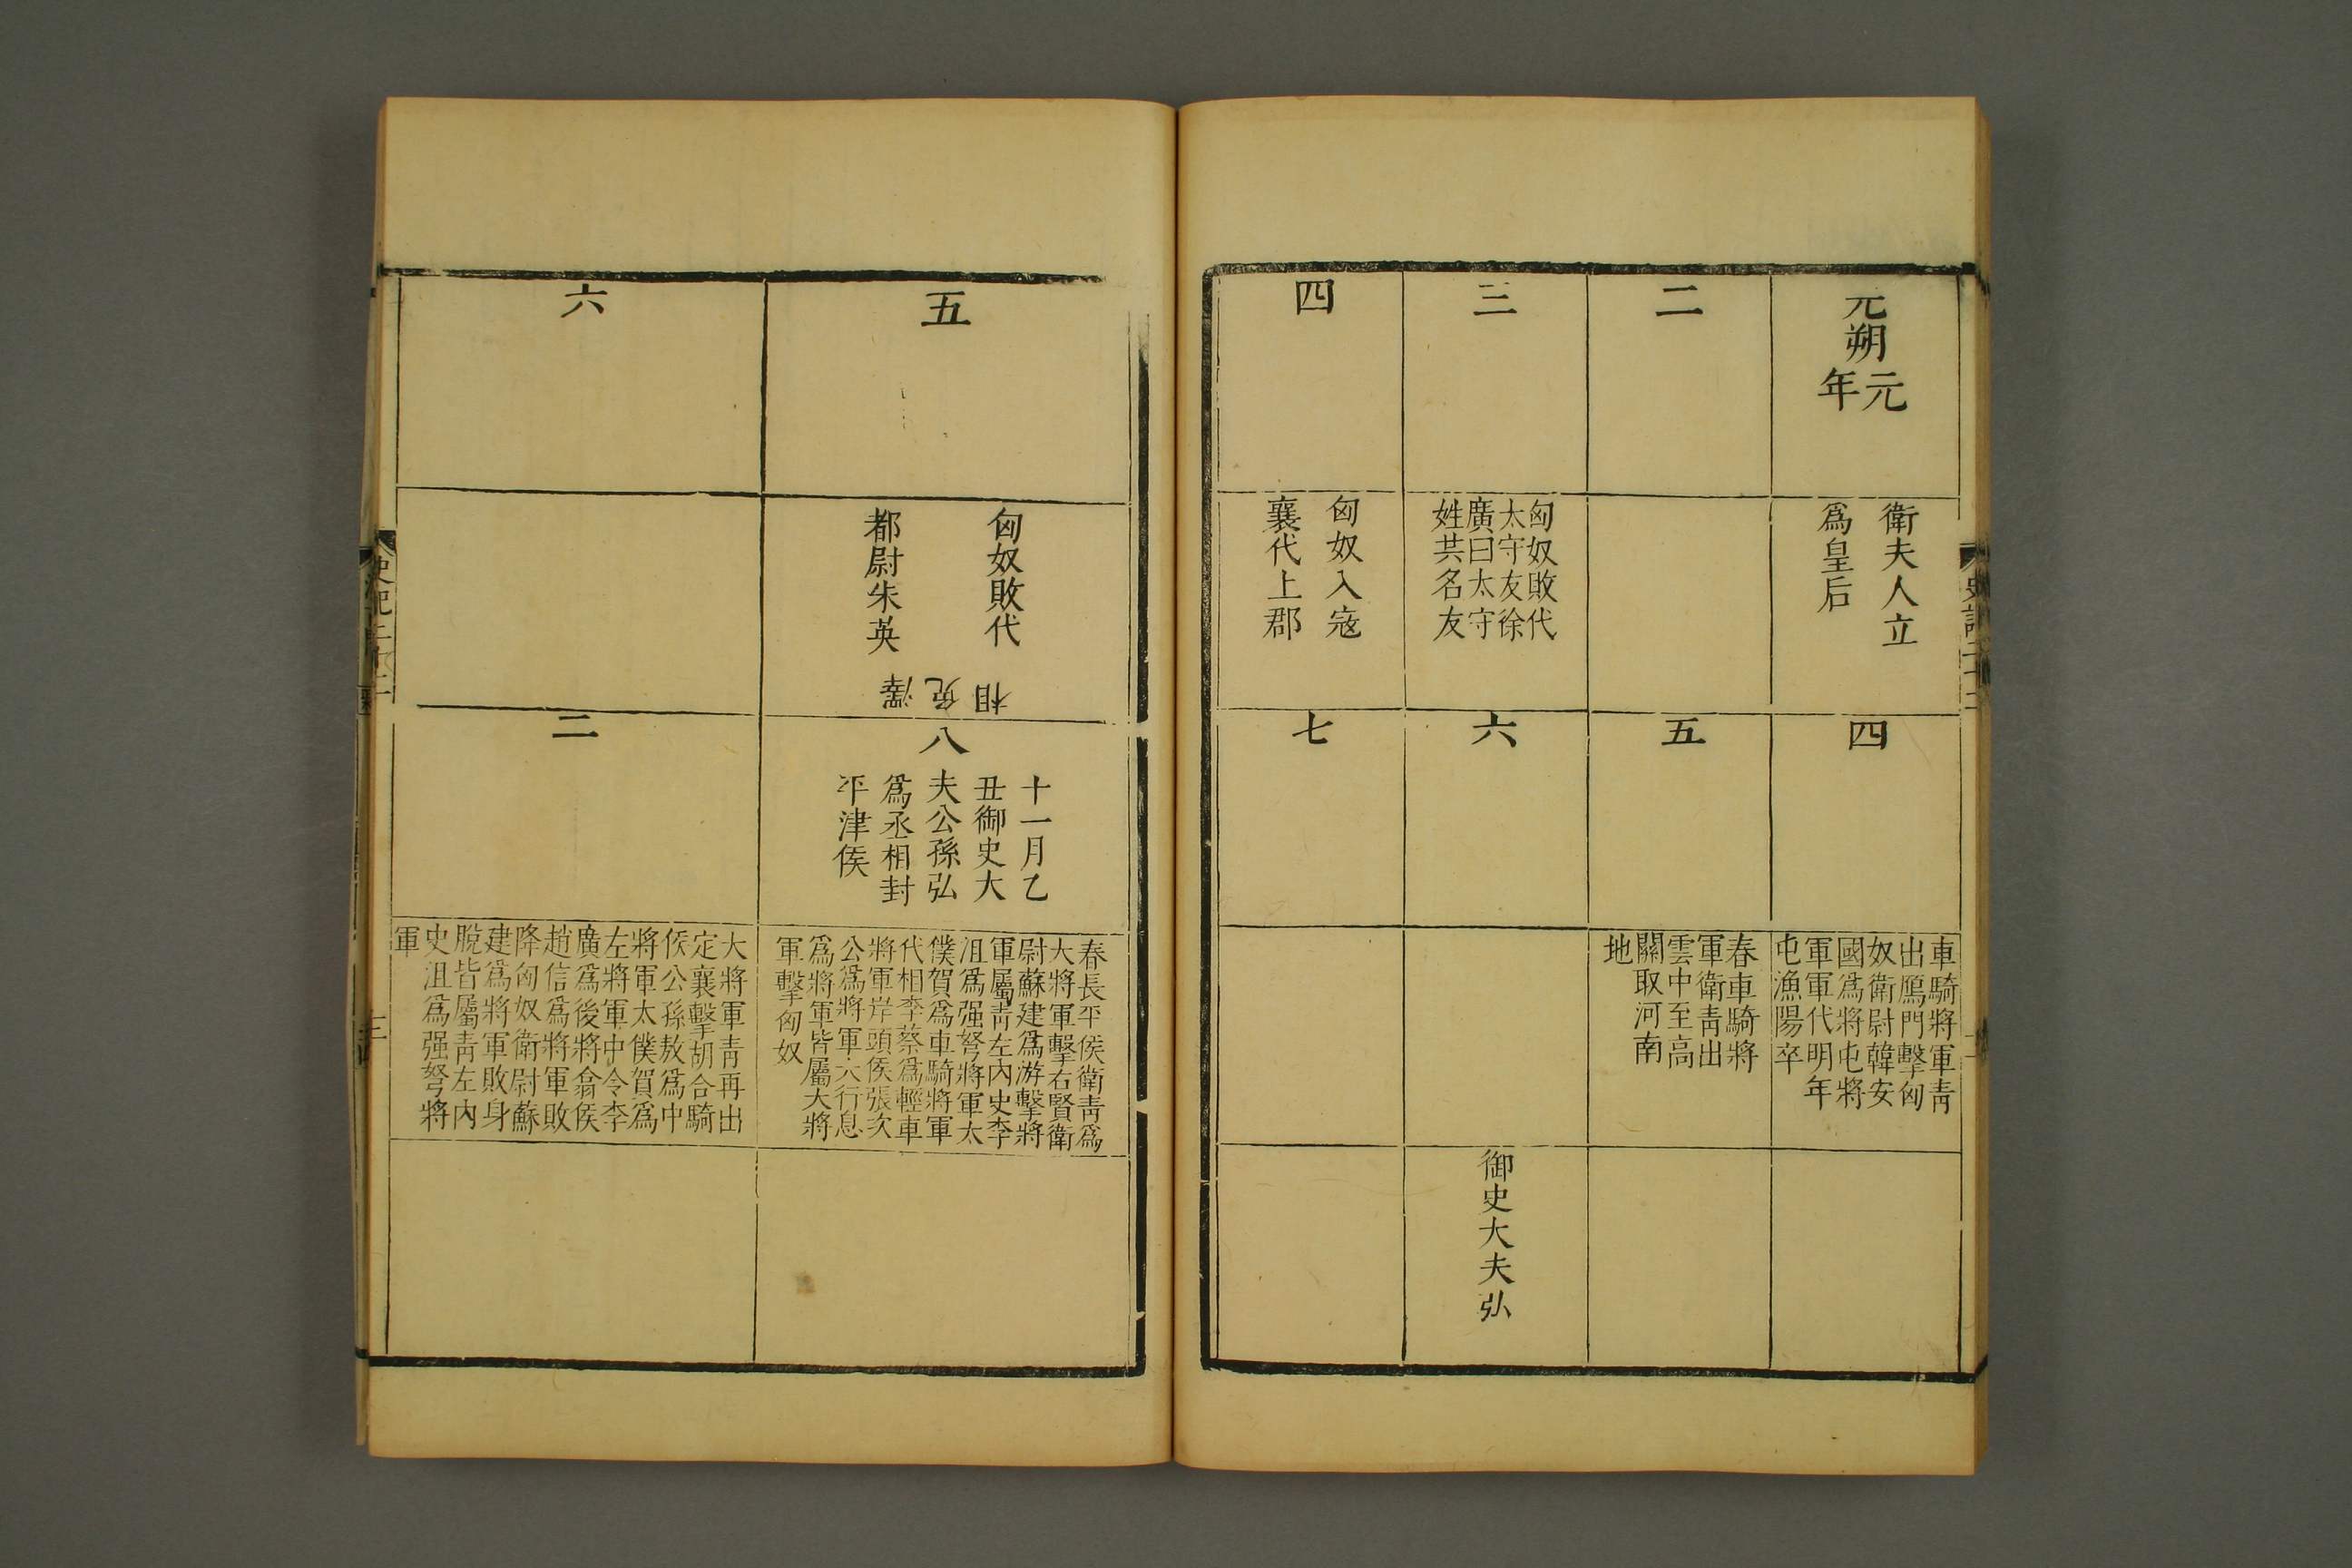 史記二十二
元朔
元
年
衛夫人立
爲皇后
四
車騎將軍青
出鴈門擊匈
奴衛尉韓安
國爲將屯將
軍軍代明年
屯漁陽卒
二
五
春車騎將
軍衛青出
雲中至高
關取河南
地
三
匈奴敗代
太守友徐
廣曰太守
姓共名友
六
御史大夫弘
四
匈奴入寇
襄代上郡
七
五
匈奴敗代
都尉朱英
澤免相
八
十一月乙
丑御史大
夫公孫弘
爲丞相封
平津侯
春長平侯衛青爲
大將軍擊右賢衛
尉蘇建爲游擊將
軍屬青左內史李
沮爲强弩將軍太
僕賀爲車騎將軍
代相李蔡爲輕車
將軍岸頭侯張次
公爲將軍大行息
爲將軍皆屬大將
軍擊匈奴
六
二
大將軍青再出
定襄擊胡合騎
侯公孫敖爲中
將軍太僕賀爲
左將軍中令李
廣爲後將翕侯
趙信爲將軍敗
降匈奴衛尉蘇
建爲將軍敗身
脫皆屬青左內
史沮爲强弩將
軍
史記二十二